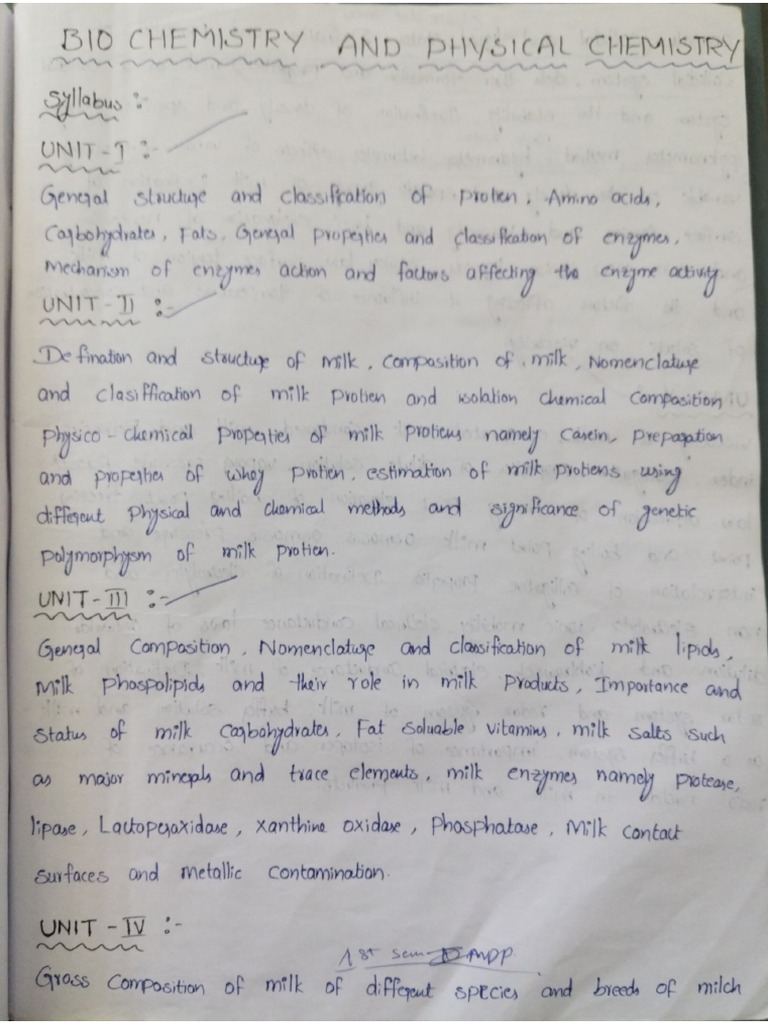 BIO CHEMISTRY AND PHYSICAL CHEMISTRY
Syllabus :-
UNIT - I :-
General structure and classification of protien, Amino acids,
Carbohydrates, Fats, General properties and classification of enzymes,
Mechanism of enzymes action and factors affecting the enzyme activity
UNIT - II :-
Defination and structure of milk, Composition of milk, Nomenclature
and clasiffication of milk protien and isolation chemical composition
physico - chemical properties of milk protiens namely casein, preparation
and properties of whey protien, estimation of milk protiens using
different physical and chemical methods and significance of genetic
polymorphysm of milk protien.
UNIT - III :-
General Composition, Nomenclature and classification of milk lipids,
Milk phospolipids and their role in milk products, Importance and
status of milk carbohydrates, Fat soluable vitamins, milk salts such
as major minerals and trace elements, milk enzymes namely protease,
lipase, Lactoperoxidase, xanthine oxidase, Phosphatase, Milk contact
surfaces and metallic contamination.
UNIT - IV :-
1st sem MPP
Gross Composition of milk of different species and breeds of milch